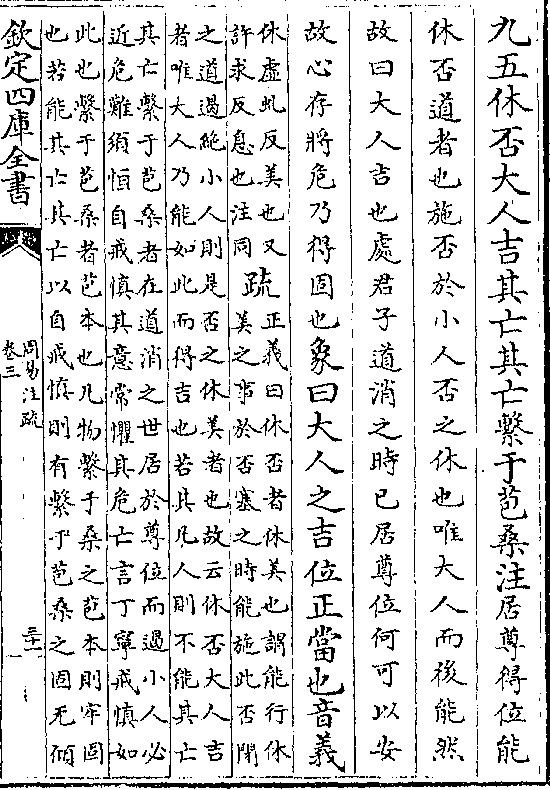 九五休否大人吉其亡其亡繫于苞桑注居尊得位能
休否道者也施否於小人否之休也唯大人而後能然
故曰大人吉也處君子道消之時已居尊位何可以安
故心存將危乃得固也象曰大人之吉位正當也音義
休虛虬反美也又
許求反息也注同
疏
正義曰休否者休美也謂能行休
美之事於否塞之時能施此否閉
之道遏絶小人則是否之休美者也故云休否大人吉
者唯大人乃能如此而得吉也若其凡人則不能其亡
其亡繫于苞桑者在道消之世居於尊位而遏小人必
近危難須恒自戒慎其意常懼其危亡言丁寧戒慎如
此也繫于苞桑者苞本也凡物繫于桑之苞本則牢固
也若能其亡其亡以自戒慎則有繫于苞桑之固无傾
欽定四庫全書
周易注疏
卷三
三十一